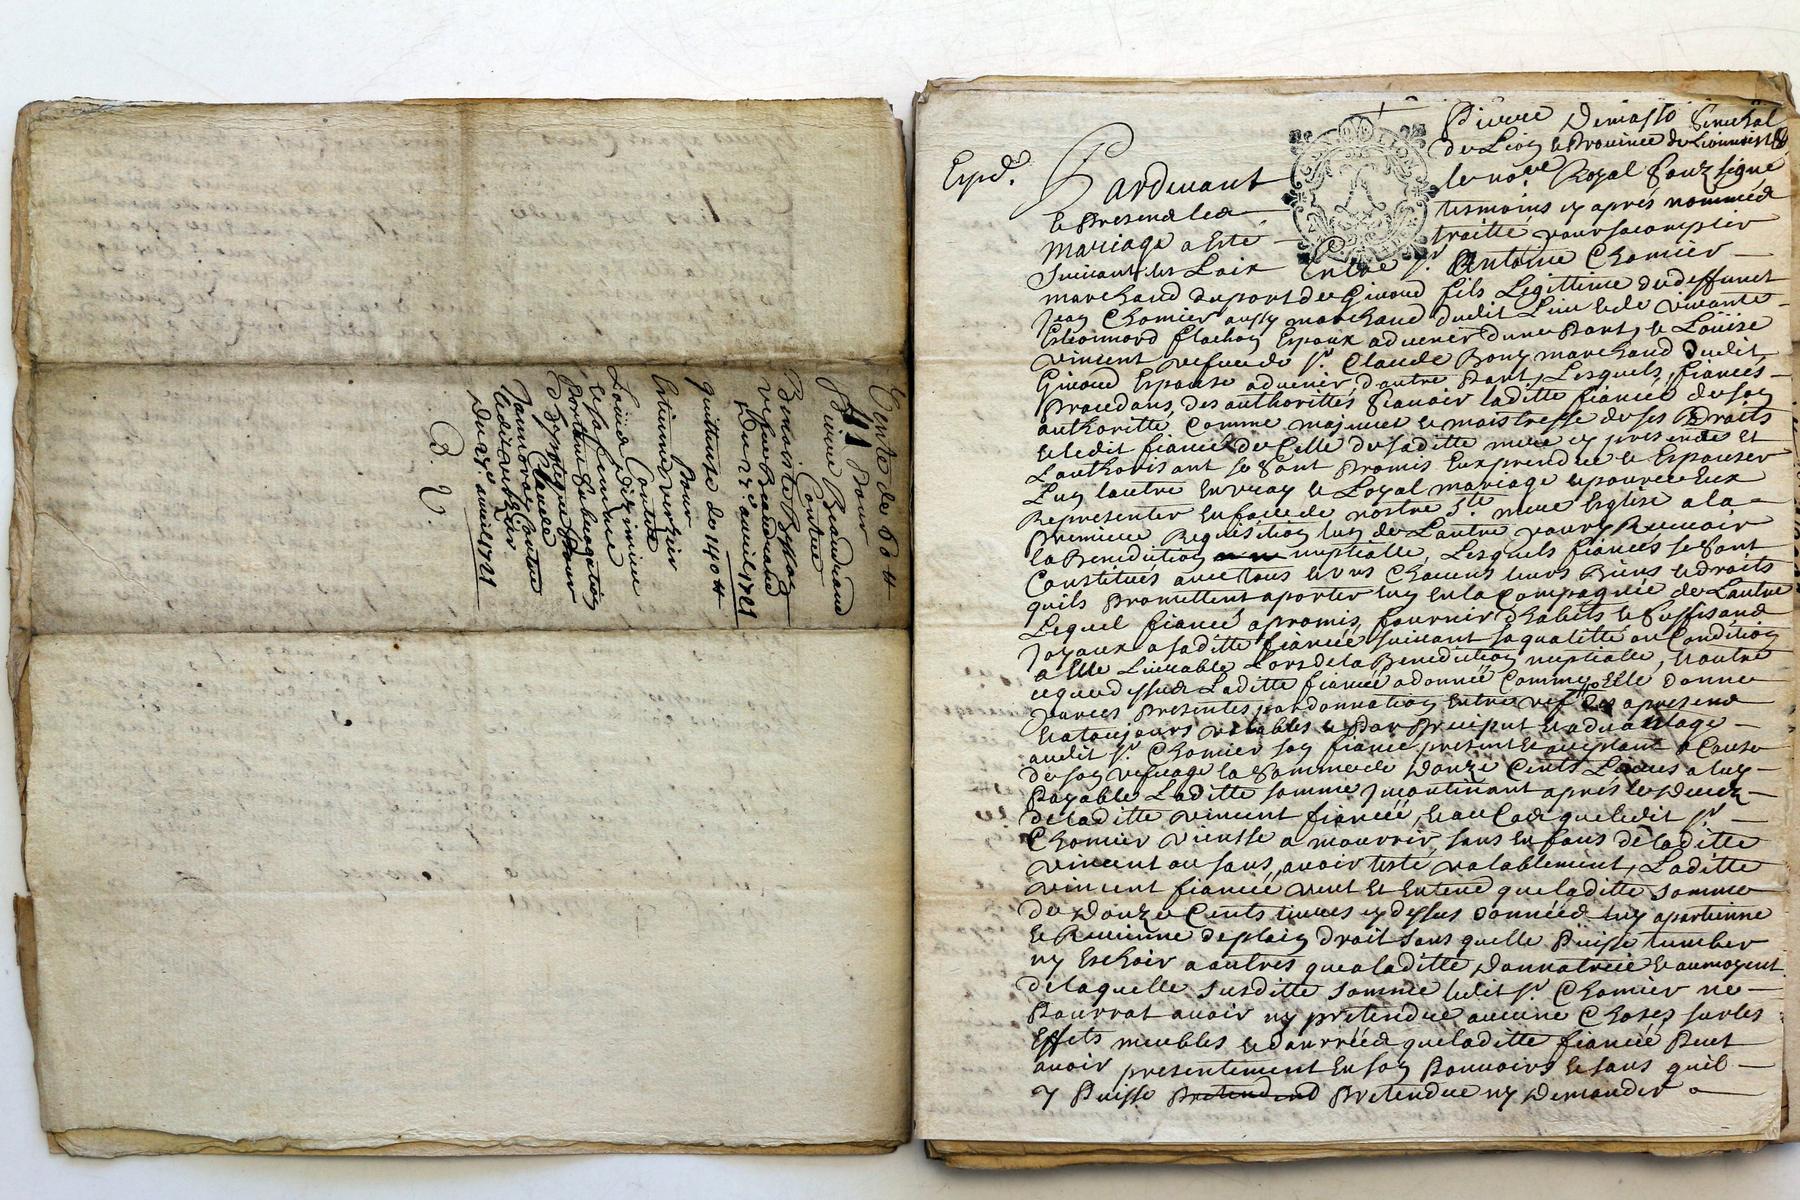 Vente de 60 tt
Pour
Pierre Beaudrand
Contre
Benoiste
vefue Beaudrand
Du 27e auril 1721
quittense de 140 tt
Pour
Estienne verzier
Contre
Louise
et sa femme
Portant subrogation
D'hypteque Pour
Claude
Contre
ledit verzier
Du 27e auril 1721
Expd.
Pierre Demasso Senechal
de Lion & Prouince de Lionnois &
Pardeuant le nore Royal Souzsigné
& Presend les tesmoins cy apres nommés
Mariage a Esté traitté pour sacomplir
Suiuant les Loix Entre sr Antoine Chomier
marchand du port de Giuord fils Legittime du deffunct
Jean Chomier aussy marchand dudit Lieu & de viuante
Flachon Espoux aduenir d'une Part, & Loüise
vincent vefue de sr Claude Bony marchand dudit
Giuord Espouse aduenir d'autre Part, Lesquels fiancés
Procedans des authorittés scauoir laditte fiancée de son
authoritté Comme majeure & maistresse de ses Droits
& ledit fiancé de Celle de saditte mere cy presende et
Lauthorisant se sont Promis Eux prendre & Espouser
L'un lautre En vray & Loyal mariage & pource Eux
Representer En face de nostre Ste mere Eglise a la
premiere Requisition Lun de Lautre pour y Receuoir
la Benediction nuptialle, Lesquels fiancés se sont
Constitués auec tous & vns Chacuns leurs Biens & droits
quils Promettent aporter Lun En la Compagniée de Lautre
Lequel fiancé a promis fournir d'habits & suffisand
Joyaux a saditte fiancée suiuant sa qualitté ou Condition
a Elle Liurable Lors de la Benediction nuptialle, & outre
ce que dessus Laditte fiancée a donné Comme Elle donne
par ces Presentes par donnation Entre vifs des a presend
& a toujours valables & Par Preciput & aduantage
audit sr Chomier son fiancé present & acceptant a Cause
de son vefuage la Somme de Douze Cents Liures a luy
Payable Laditte somme Jncontinant apres le deces
de laditte vincent fiancée, & au Cas que ledit sr
Chomier viensse a mourrir sans Enfans de laditte
vincent ou sans auoir testé valablement, Laditte
vincent fiancée veut Et Entend que laditte somme
de Douze Cents liures cy dessus donnée luy apartienne
& Reuienne de plain droit sans quelle Puisse tumber
ny Eschoir a autres que a laditte Donnatrice & au moyent
de laquelle susditte somme ledit sr Chomier ne
Pourrat auoir ny pretendre aucune Choses sur les
Effets meubles & danrrées que laditte fiancée Peut
auoir presentement En son Pouuoirs & sans quil
y Puisse pretend Pretendre ny Demander